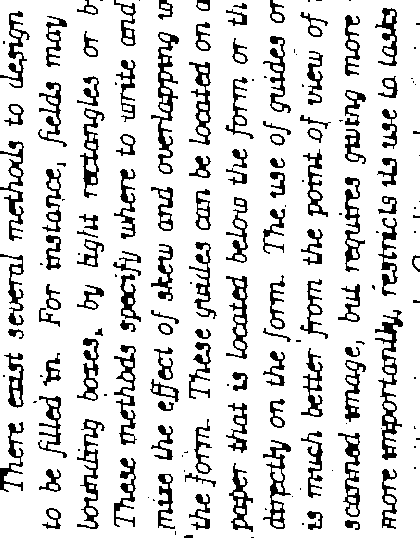 There exist several methods to design
to be filled in. For instance, fields may
bounding boxes, by light rectangles or by
These methods specify where to write and
mize the effect of skew and overlapping
the form. These guides can be located on a
paper that is located below the form or
directly on the form. The use of guides on
is much better from the point of view of
scanned image, but requires giving more
more importantly, restricts its use to tasks